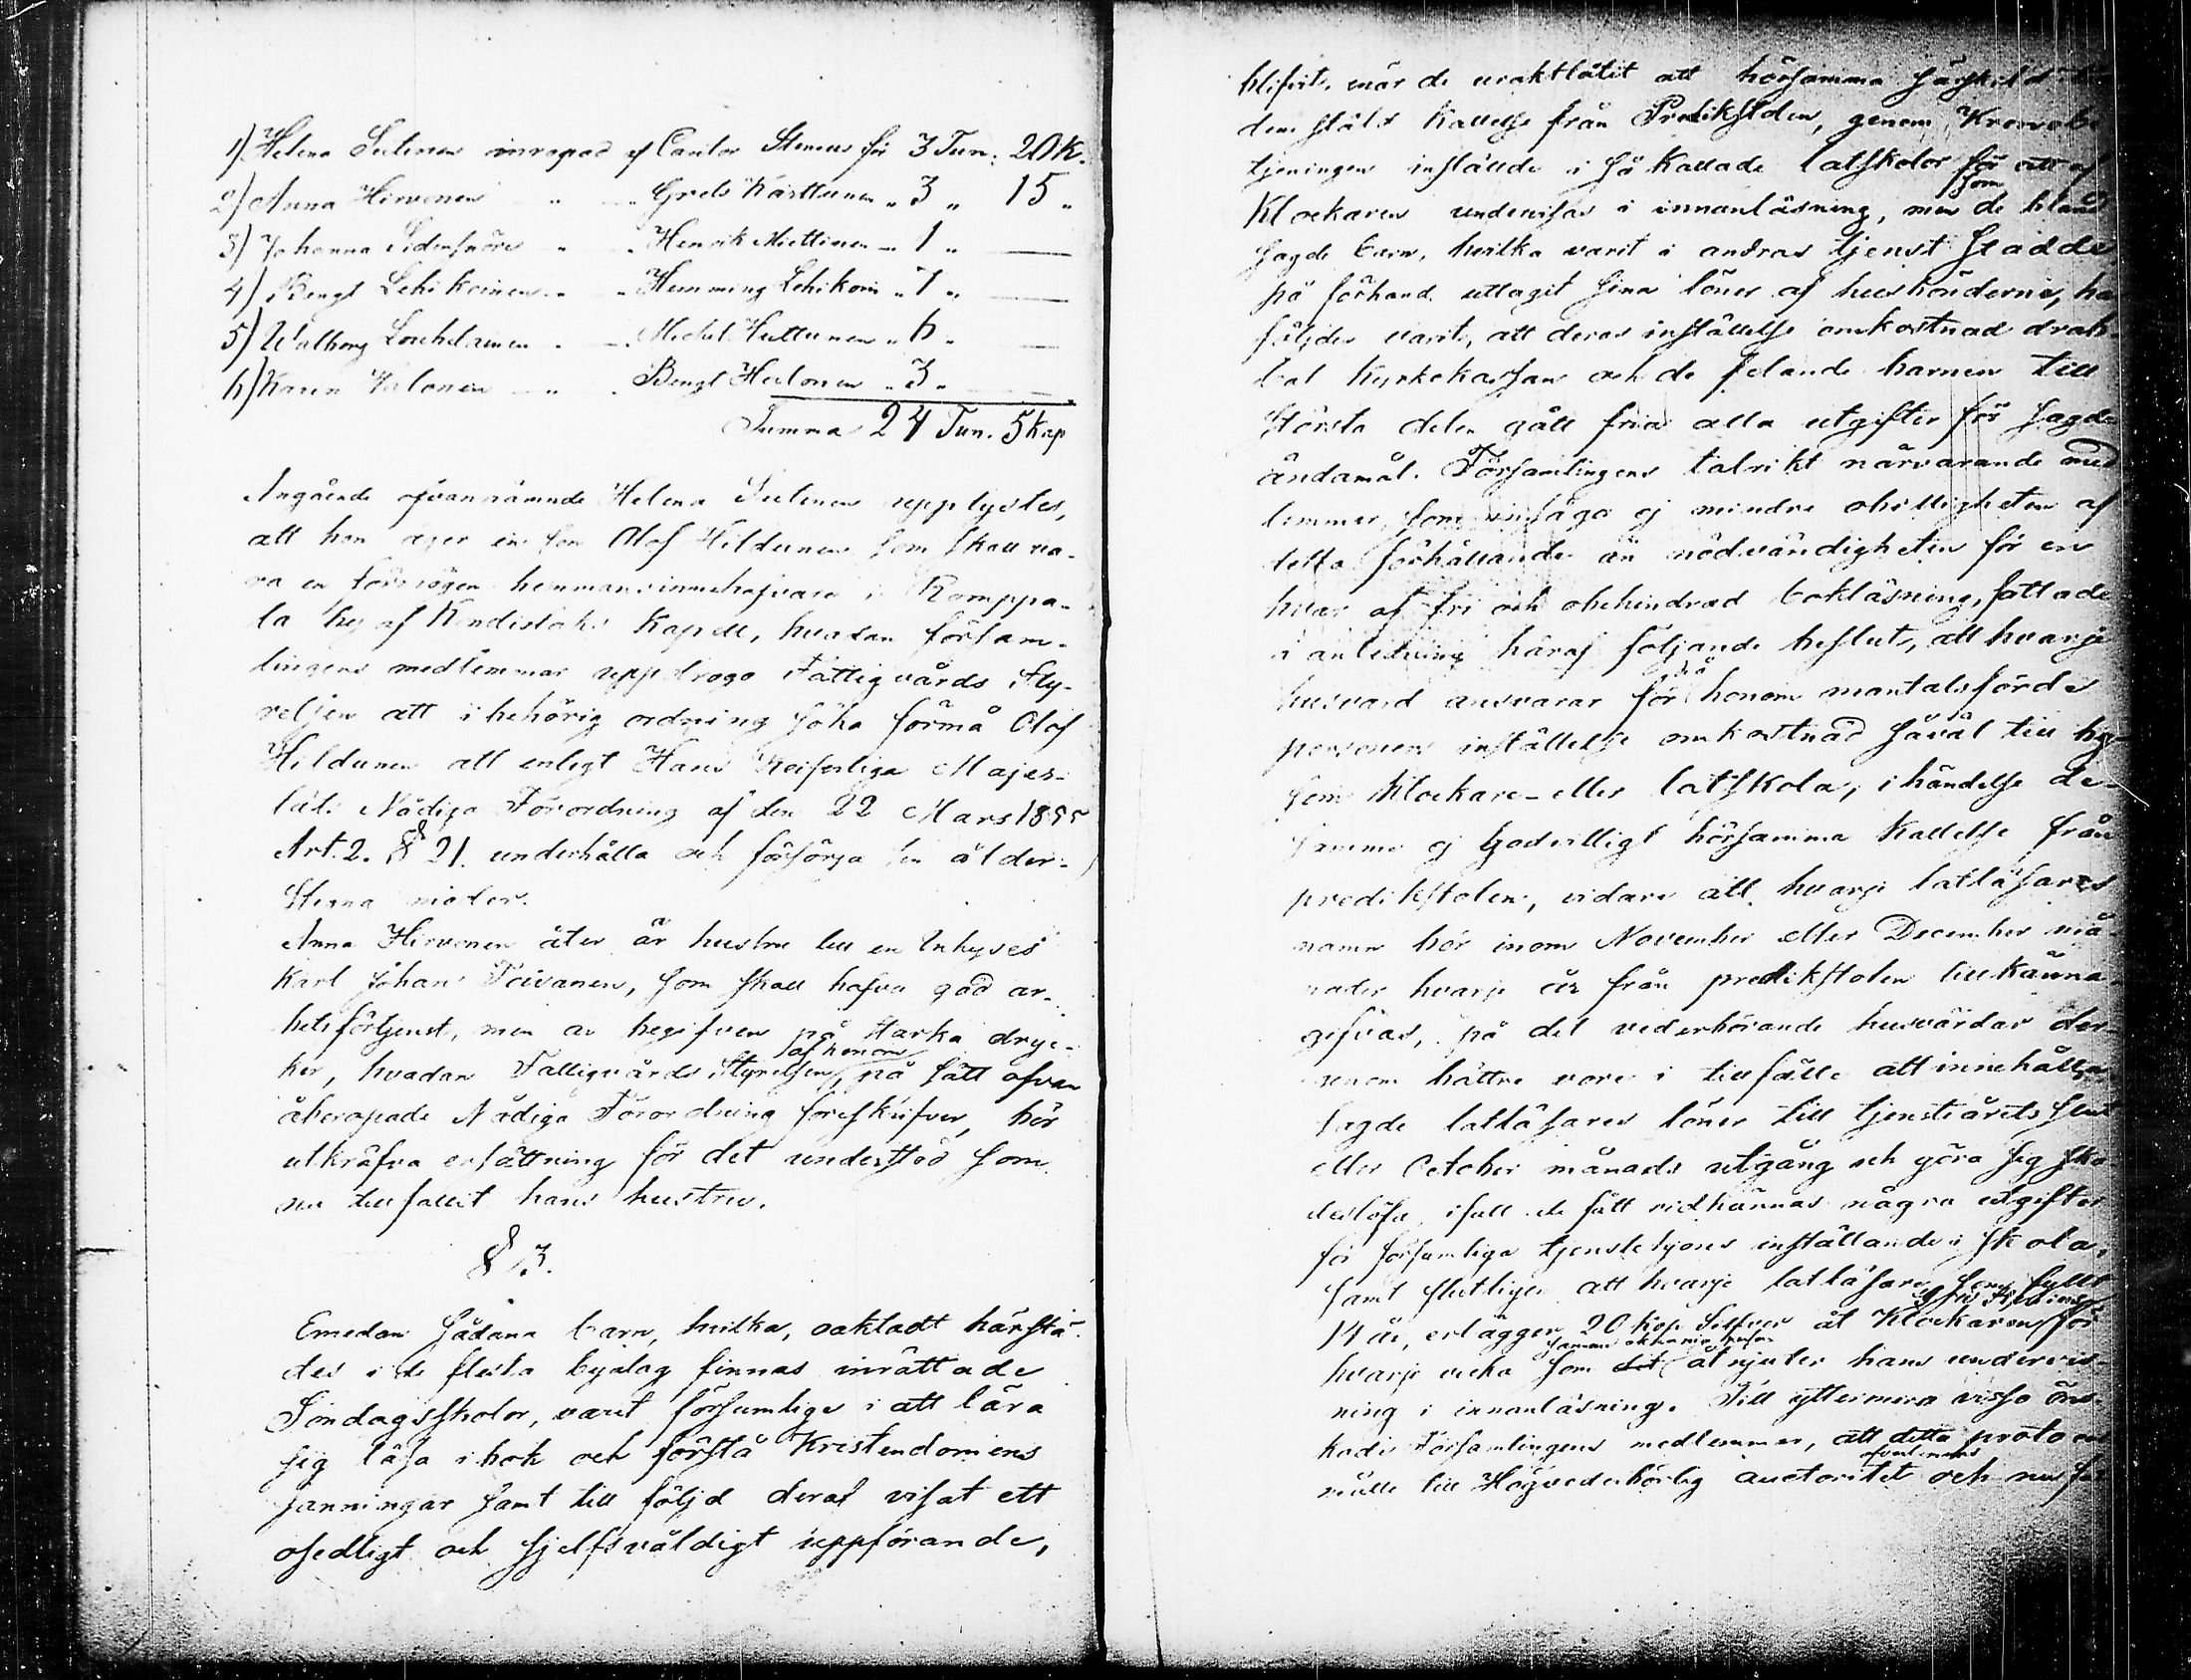 1) Helena Sutinen inropad af Cantor Stenius för 3 Tun. 20 k.
2) Anna Hirvonen " " Grels Karttunen " 3 " 15 "
3) Johanna Sidensnöre " " Henrik Miettinen " 1 " —
4) Bengt Lehikoinen " " Hemming Lehikoin " 7 " —
5) Walborg Louhelainen " " Michel Huttunen " 6 " —
6) Karin Halonen " " Bengt Halonen " 3 " —
Summa 24 Tun. 5 Kap
Angående ofvannämnde Helena Sutinen upplystes,
att hon äger en son Olof Hildunen som skall va-
ra en förmögen hemmansinnehafvare i Romppa-
la by af Kondiolaks Kapell, hvadan försam-
lingens medlemmar uppdrogo Fattigvårds Sty-
relsen att i behörig ordning söka förmå Olof
Hildunen att enligt Hans Kejserliga Majes-
täts Nådiga Förordning af den 22 Mars 1852
Art. 2. § 21. underhålla och försörja sin ålder-
stigna moder.
Anna Hirvonen åter är hustru till en Inhyses
Karl Johan Toivanen, som skall hafva god ar-
betsförtjenst, men är begifven på starka dryc-
ker, hvadan Fattigvårds Styrelsen af honom, på sätt ofvan
åberopade Nådiga Förordning föreskrifver, bör
utkräfva ersättning för det understöd som
nu tillfallit hans hustru.
§ 3.
Emedan sådana barn, hvilka, oaktadt härstä-
des i de flesta byalag finnas inrättade
Söndagsskolor, varit försumliga i att lära
sig läsa i bok och förstå Kristendomens
sanningar samt till följd deraf visat ett
osedligt och sjelfsvåldigt uppförande,
blifvit, när de uraktlåtit att hörsamma särskild till
dem stäld kallelse från Predikstolen, genom Kronobe
tjeningen instälde i så kallade latskolor för att af
Klockaren undervisas i innanläsning, men som de bland
sagde barn, hvilka varit i andras tjenst stadde
på förhand uttagit sina löner af husbönderne, ha
följden varit, att deras inställelse omkostnad drab-
bat Kyrkokassan och de felande barnen till
största delen gått fria alla utgifter för sagde
ändamål. Församlingens talrikt närvarande med
lemmar, som insågo ej mindre obilligheten af
detta förhållande än nödvändigheten för en
hvar af fri och obehindrad bokläsning, fattade
i anledning häraf följande beslut, att hvarje
husvärd ansvarar för hos honom mantalsförde
personers inställelse omkostnad såväl till by-
som klockare- eller latskola, i händelse de-
samme ej godvilligt hörsamma kallelse från
predikstolen, vidare att hvarje latläsares
namn bör inom November eller December må-
nader hvarje år från predikstolen tillkänna-
gifvas, på det vederbörande husvärdar der-
igenom bättre vore i tillfälle att innehålla
sagde latläsares löner till tjensteårets slut
eller October månads utgång och göra sig ska-
deslösa, ifall de fått vidkännas några utgifter
för försumliga tjenstehjons inställande i skola,
samt slutligen att hvarje latläsare, som fyllt
14 år, erlägger 20 kop. Silfver åt Klockaren för
hvarje vecka som åtnjuter hans undervis-
ning i innanläsning. Till yttermera visso öns-
kade Församlingens medlemmar, att detta proto co
mätte till Högvederbörlig auctoritet och